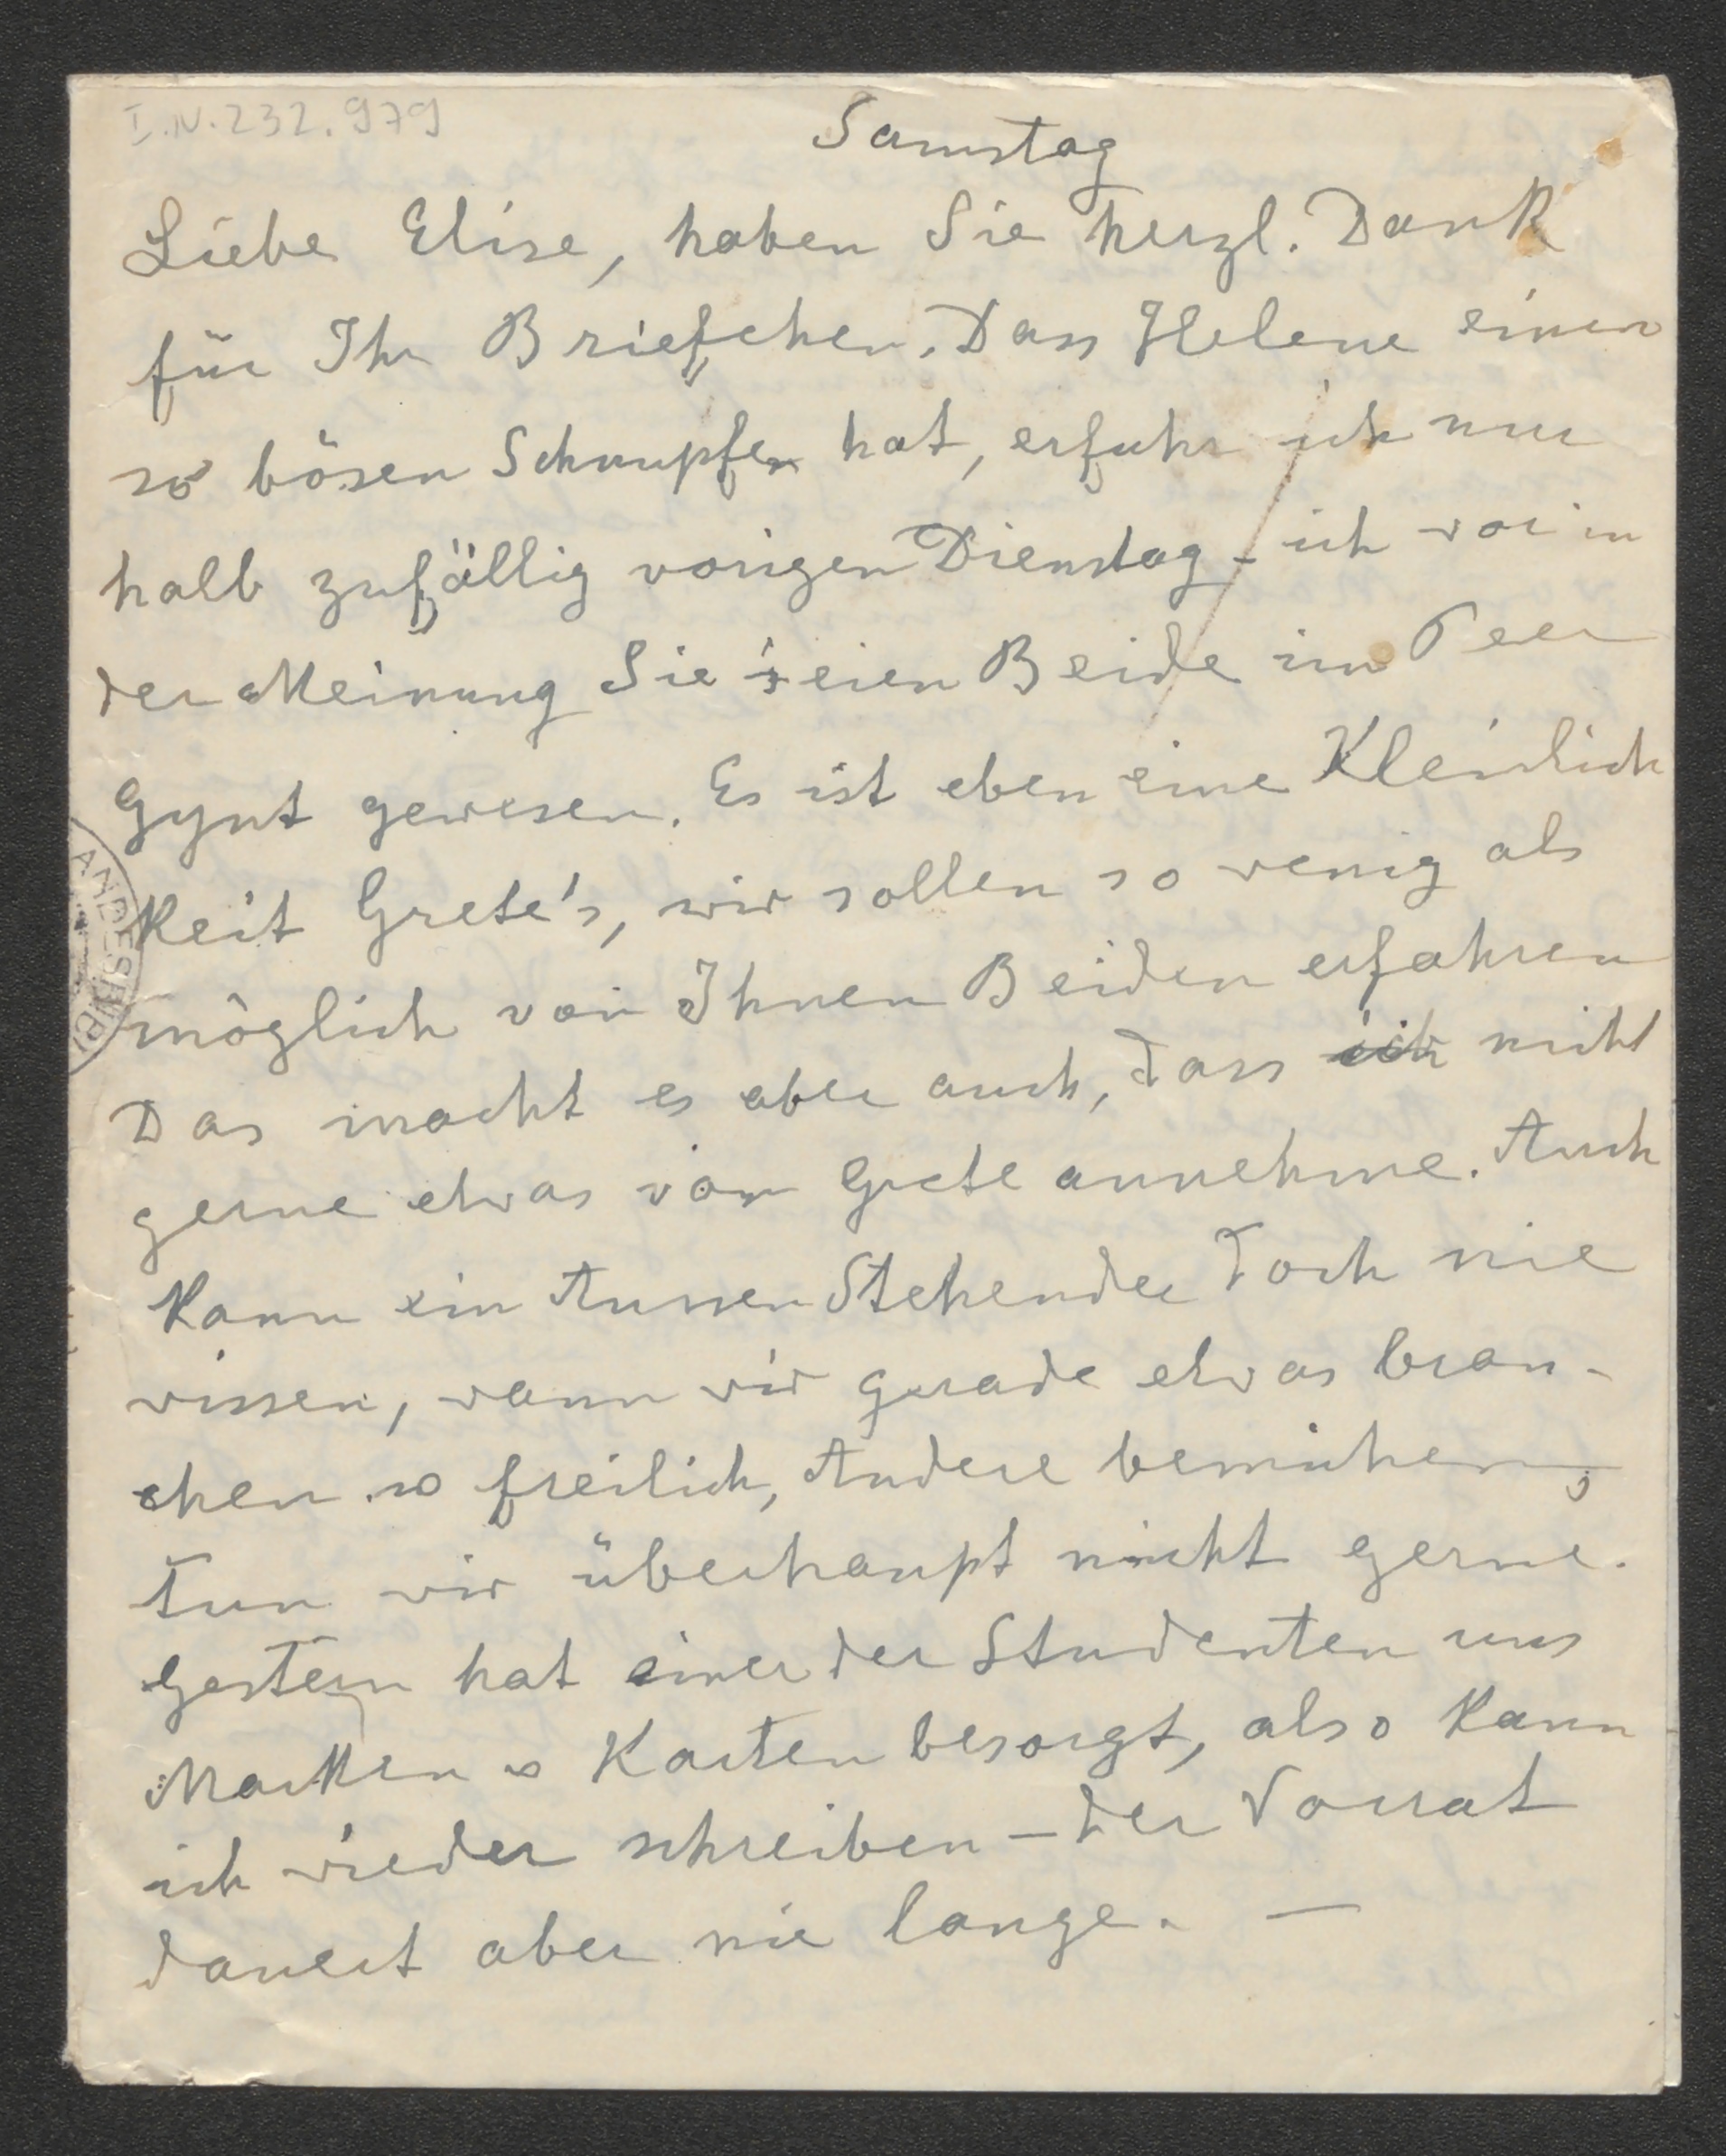 I.N. 232.979
Samstag
Liebe Elise, haben Sie herzl. Dank
für Ihr Briefchen. Dass Helene einen
so bösen Schnupfen hat, erfuhr ich nur
halb zufällig vorigen Dienstag - ich war in
der Meinung Sie seien Beide im Peer
Gynt gewesen. Es ist eben eine Kleinlich
keit Grete's, wir sollen so wenig als
möglich von Ihnen Beiden erfahren
Das macht es aber auch, dass ich nicht
gerne etwas von Grete annehme. Auch
kann ein Aussen Stehender doch nie
wissen, wann wir gerade etwas brau-
chen so freilich, Andere bemühen,
tun wir überhaupt nicht gerne.
Gestern hat einer der Studenten uns
Marken u Karten besorgt, also kann
ich wieder schreiben - der Vorrat
dauert aber nie lange. —
ANDESBIBL